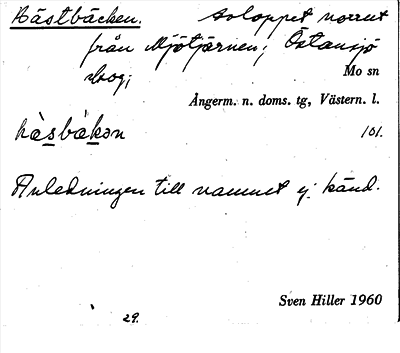 Hästbäcken. avloppet norrut
från Mjötjärnen; Östansjö
skog;
Mo sn
Ångerm. n. doms. tg, Västern. l.
hàsbàkən 101.
Anledningen till namnet ej känd.
Sven Hiller 1960
29.